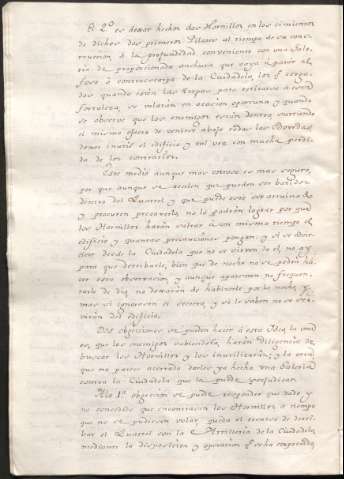 El 2º es dexar hechos dos Hornillos en los cimientos
de dichos dos primeros Pilares al tiempo de su cons-
truccion, à la profundidad conveniente con una Gale-
ria de proporcionada anchura que vaya à parar al
foso, ò contraescarpa de la Ciudadela, los q.e carga-
dos quando esten las Tropas para retirarse à esta
fortaleza, se volarán en ocasion oportuna y quando
se observe que los enemigos están dentro, surtiendo
el mismo efecto de venirse abajo todas las Bovedas
demas inutil el edificio y tal vez con mucha perdi-
da de los contrarios.
Este medio aunque mas costoso es mas seguro,
por que aunque se recelen que pueden ser batidos
dentro del Quartel y que pueda este ser arruinado
y procuren precaverlo, no lo podrán lograr por que
los Hornillos harán saltar à un mismo tiempo el
edificio y quantas precauciones pongan; y si se advir-
tiere desde la Ciudadela que no se sirven de el, no ay
para que derribarle, bien que de noche no se podrá ha-
cer esta observacion y aunque aparenten no frequen-
tarle de dia, no dexarán de habitarle por la noche, y
mas si ignoraren el secreto, y si le saben no se ser-
virán del edificio.
Dos objeciones se pueden hacer à esta Idea, la una
es, que los enemigos sabiendola, harán diligencias de
buscar los Hornillos y los inutilizarán; y la otra
que no parece acertado darles ya hecha una Galeria
contra la Ciudadela que la pueda perjudicar.
A la 1ª objecion se puede responder que dado y
no concedido que encontrasen los Hornillos à tiempo
que no se pudiesen volar, queda el recurso de derri-
bar el Quartel con la Artilleria de la Ciudadela,
mediante la disposicion y operacion q.e se ha empezado,